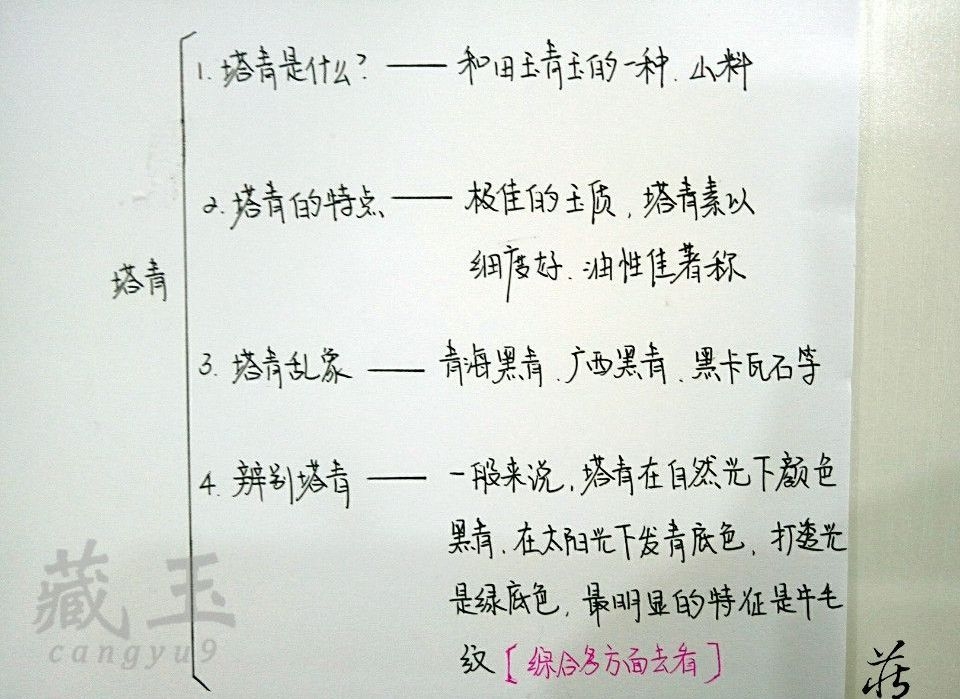 塔青
1. 塔青是什么? —— 和田玉青玉的一种、山料
2. 塔青的特点 —— 极佳的玉质,塔青素以
细度好、油性佳著称
3. 塔青乱象 —— 青海黑青、广西黑青、黑卡瓦石等
4. 辨别塔青 —— 一般来说,塔青在自然光下颜色
黑青、在太阳光下发青底色,打透光
是绿底色,最明显的特征是牛毛
纹[综合多方面去看]
藏玉
cangyu9